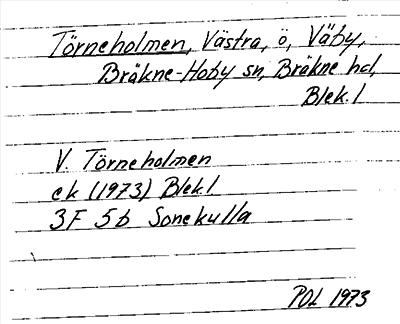 Törneholmen, Västra, ö, Väby,
Bräkne-Hoby sn, Bräkne hd,
Blek. l
V. Törneholmen
ek (1973) Blek l
3F 5b Sonekulla
POL 1973